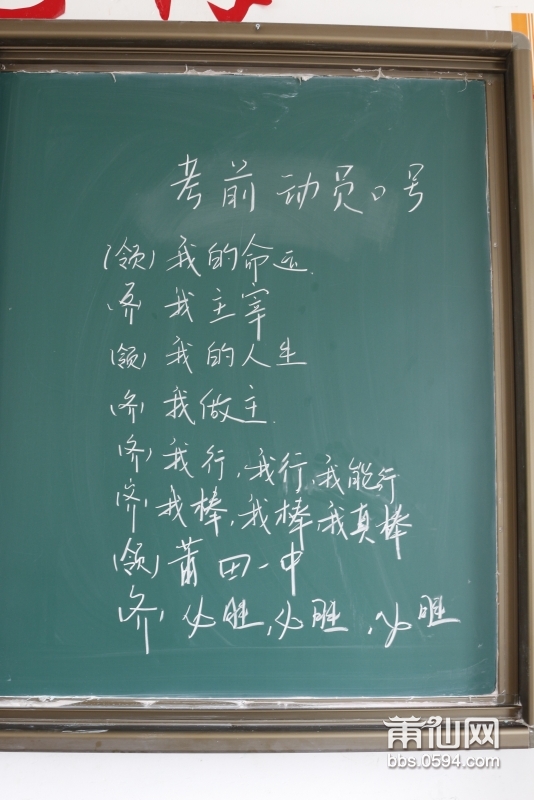 考前动员口号
(领) 我的命运.
(齐) 我主宰
(领) 我的人生
(齐) 我做主.
(齐) 我行,我行,我能行
(齐) 我棒,我棒,我真棒
(领) 莆田一中
(齐) 必胜,必胜,必胜
莆仙网
bbs.0594.com